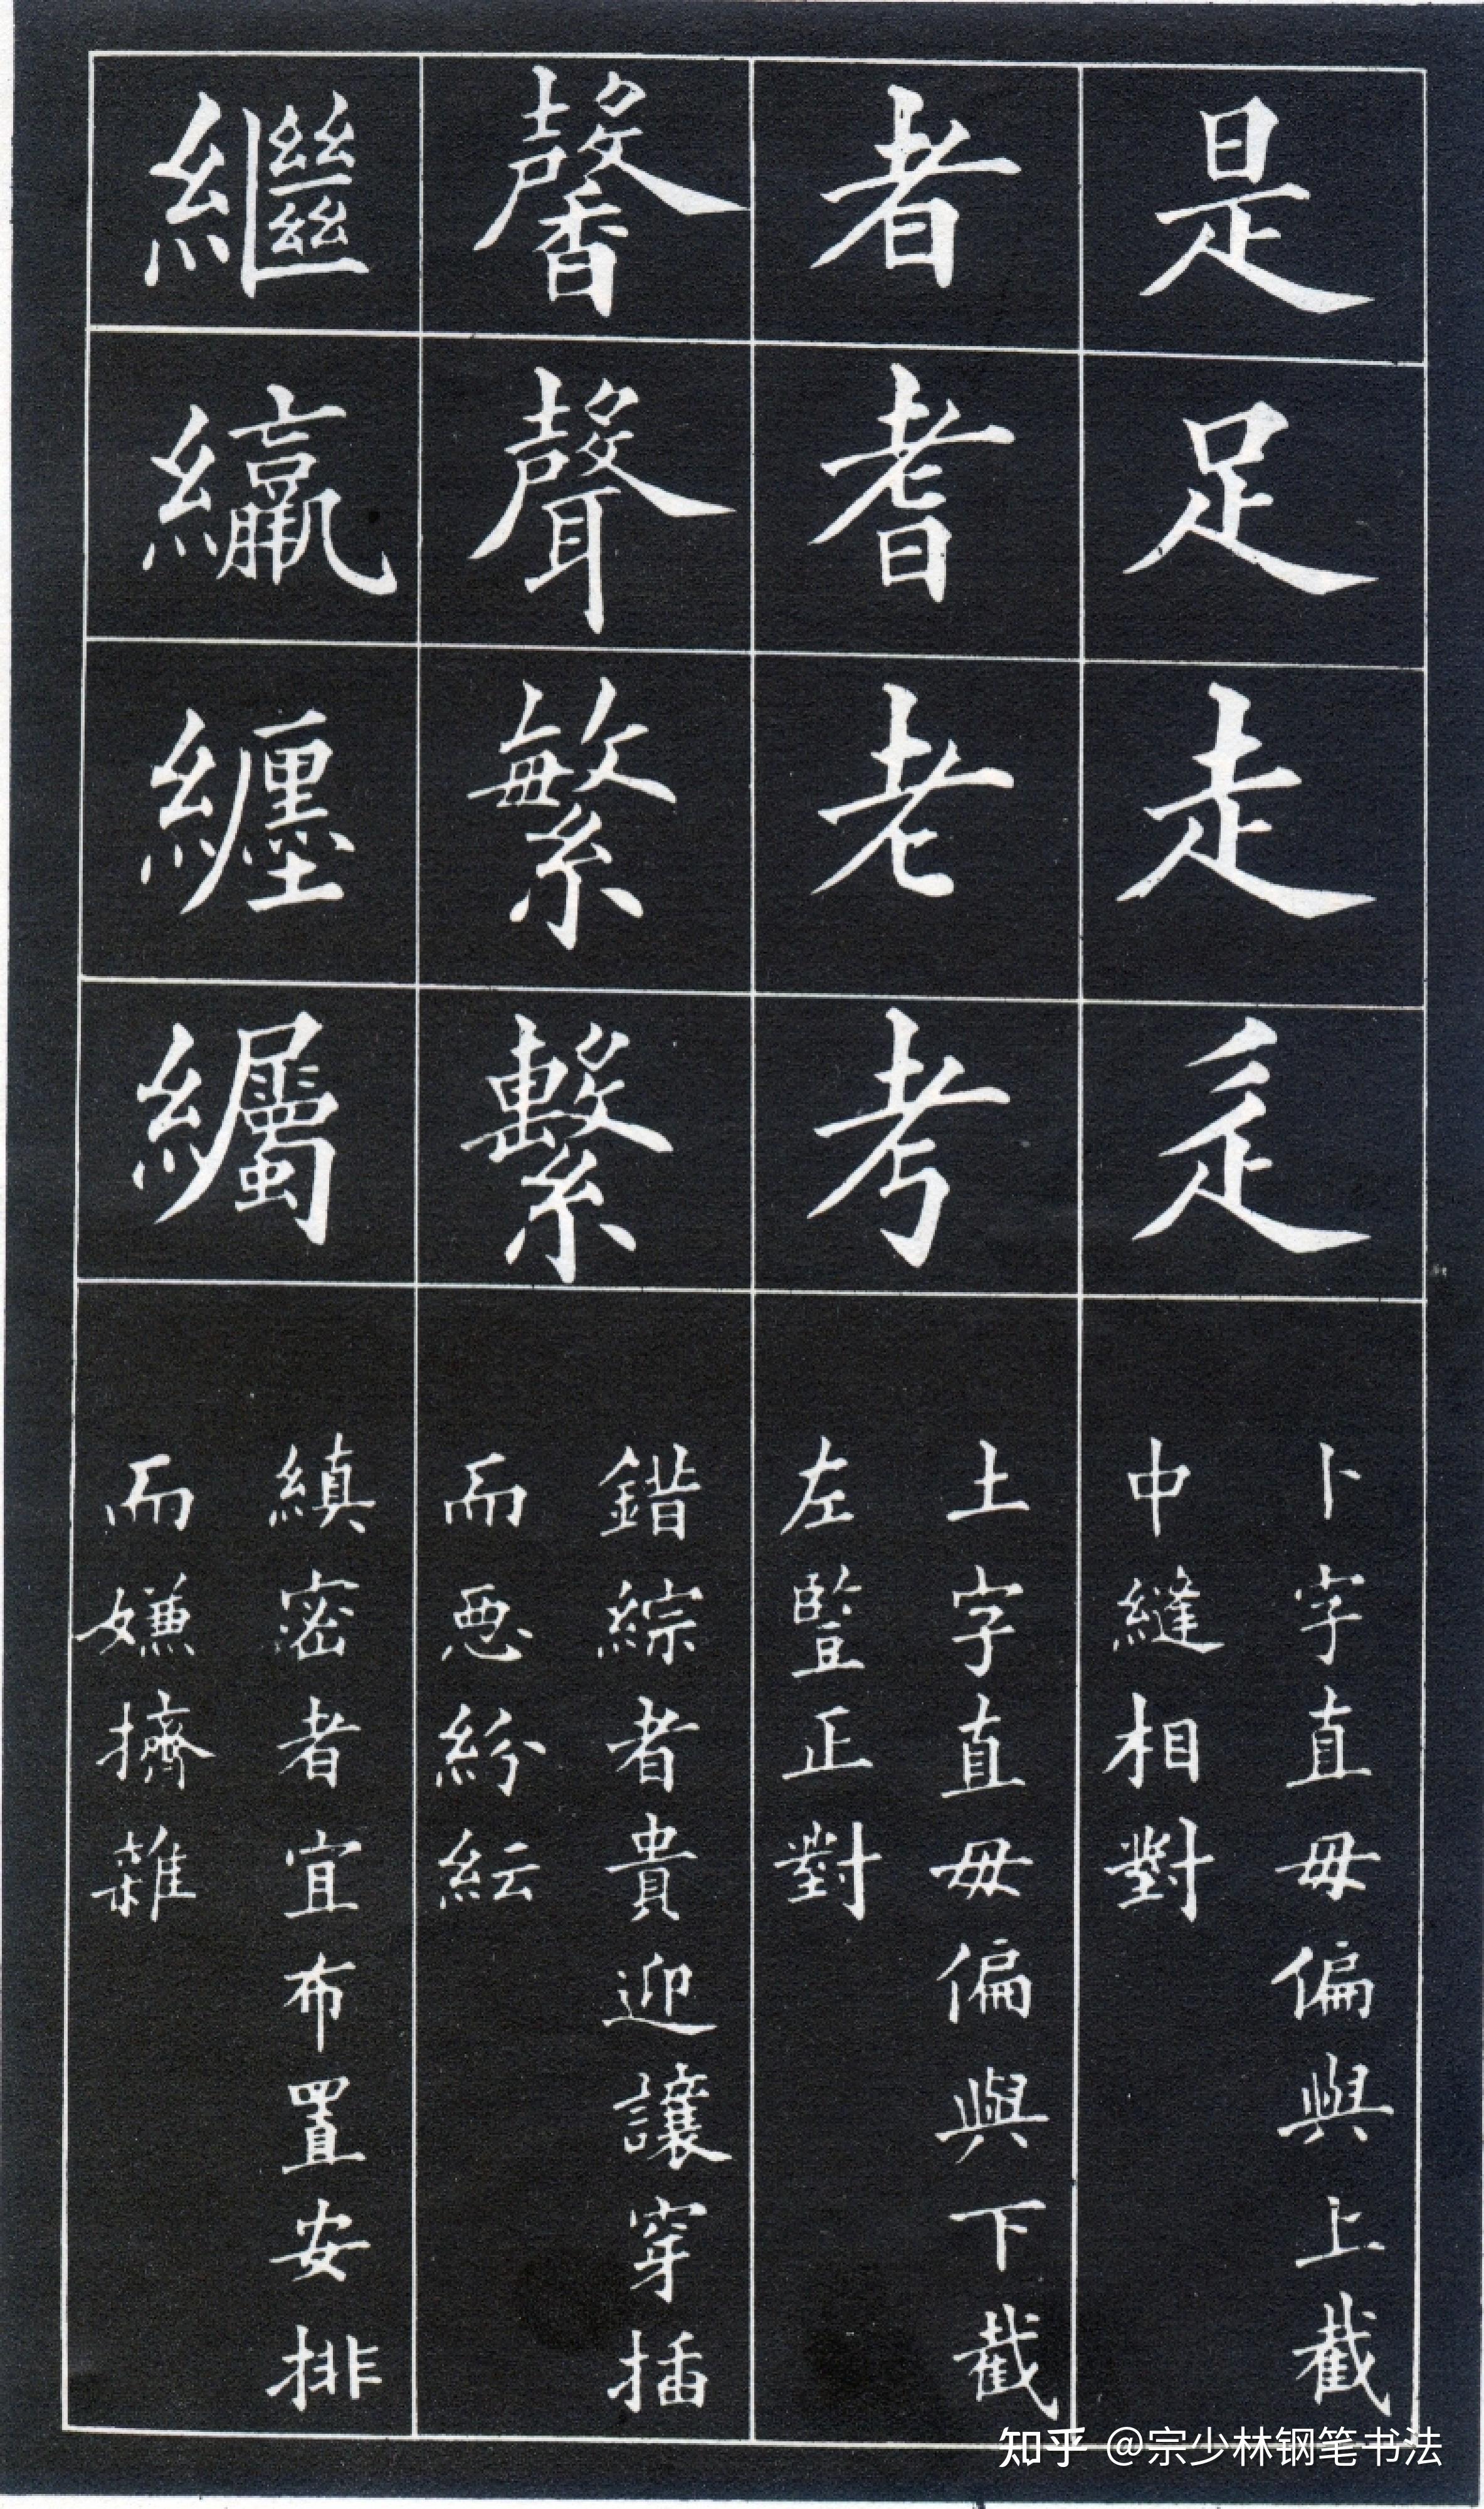 是足走辵
卜字直毋偏與上截
中縫相對
者耆老考
土字直毋偏與下截
左豎正對
馨聲繁繫
錯綜者貴迎讓穿插
而惡紛紜
繼纏
縝密者宜布置安排
而嫌擠雜
知乎 @宗少林钢笔书法